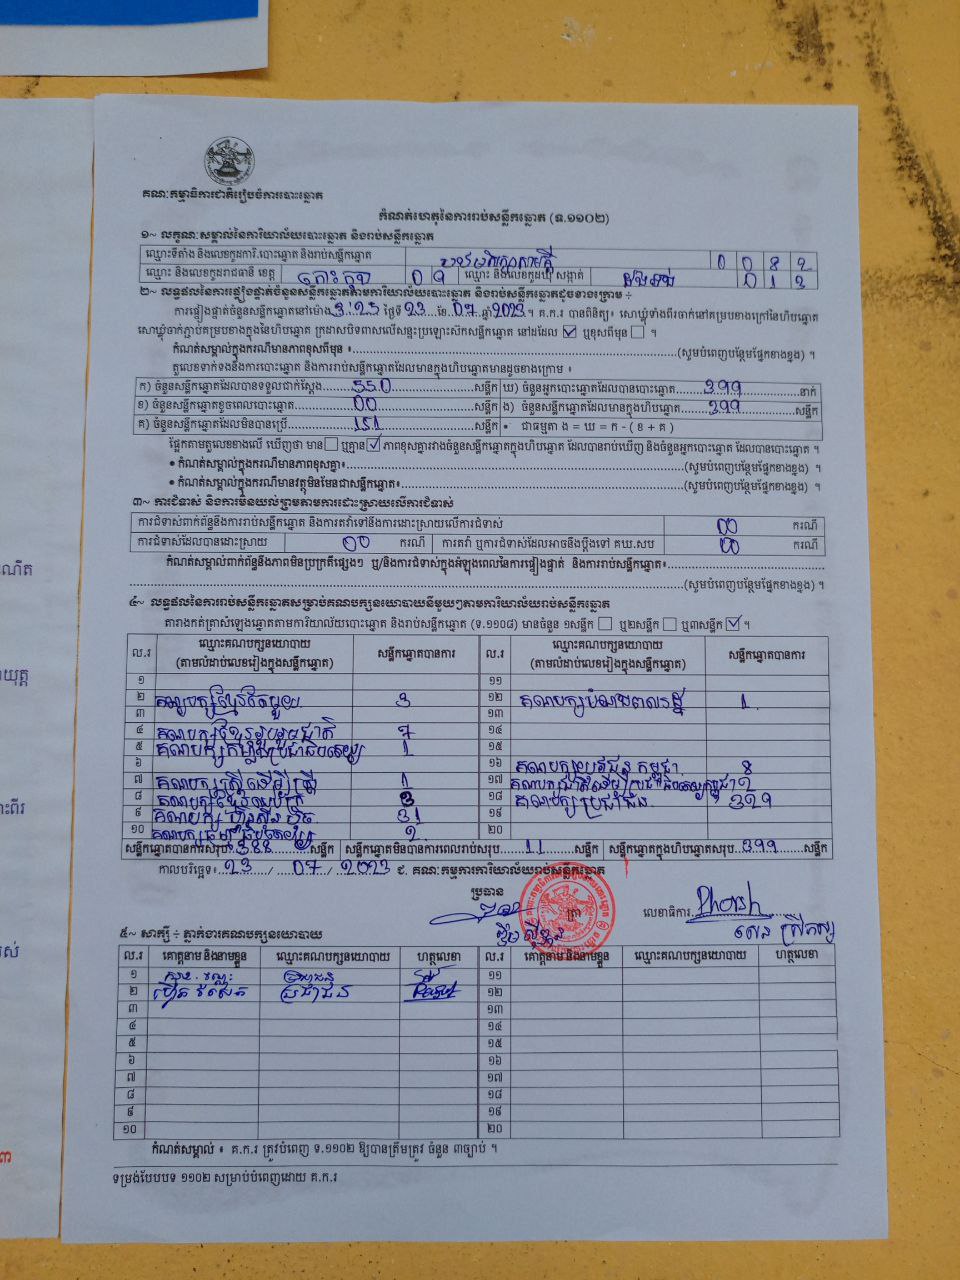 គណៈកម្មាធិការជាតិរៀបចំការបោះឆ្នោត
កំណត់ហេតុនៃការរាប់សន្លឹកឆ្នោត (ទ.១១០២)
១~ លក្ខណៈសម្គាល់នៃការិយាល័យបោះឆ្នោត និងរាប់សន្លឹកឆ្នោត
ឈ្មោះទីតាំង និងលេខកូដការិ.បោះឆ្នោត និងរាប់សន្លឹកឆ្នោត
ឈ្មោះ និងលេខកូដរាជធានី ខេត្ត កោះកុង 0 9 ឈ្មោះ និងលេខកូដឃុំ សង្កាត់
២~ លទ្ធផលនៃការផ្ទៀងផ្ទាត់ចំនួនសន្លឹកឆ្នោតតាមការិយាល័យបោះឆ្នោត និងរាប់សន្លឹកឆ្នោតដូចខាងក្រោម ÷
ការផ្ទៀងផ្ទាត់ចំនួនសន្លឹកឆ្នោតនៅម៉ោង 3:25 ថ្ងៃទី 23 ខែ 07 ឆ្នាំ 2023 ។ គ.ក.រ បានពិនិត្យ ៖ សោឃ្នុំទាំងពីរចាក់នៅគម្របខាងក្រៅនៃហិបឆ្នោត
សោឃ្នុំចាក់ភ្ជាប់គម្របខាងក្នុងនៃហិបឆ្នោត ក្រដាសបិទពាសលើសន្ទះប្រឡោះស៊កសន្លឹកឆ្នោត នៅដដែល ☑ ឬខុសពីមុន ☐ ។
កំណត់សម្គាល់ក្នុងករណីមានភាពខុសពីមុន ៖ (សូមបំពេញបន្ថែមផ្នែកខាងខ្នង) ។
តួលេខទាក់ទងនឹងការបោះឆ្នោត និងការរាប់សន្លឹកឆ្នោតដែលមានក្នុងហិបឆ្នោតមានដូចខាងក្រោម ៖
ក) ចំនួនសន្លឹកឆ្នោតដែលបានទទួលជាក់ស្តែង 550 សន្លឹក ឃ) ចំនួនអ្នកបោះឆ្នោតដែលបានបោះឆ្នោត 399 នាក់
ខ) ចំនួនសន្លឹកឆ្នោតខូចពេលបោះឆ្នោត 00 សន្លឹក ង) ចំនួនសន្លឹកឆ្នោតដែលមានក្នុងហិបឆ្នោត 399 សន្លឹក
គ) ចំនួនសន្លឹកឆ្នោតដែលមិនបានប្រើ 151 សន្លឹក • ជាធម្មតា ង = ឃ = ក - ( ខ + គ )
ផ្អែកតាមតួលេខខាងលើ ឃើញថា មាន ☐ ឬគ្មាន ☑ ភាពខុសគ្នារវាងចំនួនសន្លឹកឆ្នោតក្នុងហិបឆ្នោត ដែលបានរាប់ឃើញ និងចំនួនអ្នកបោះឆ្នោត ដែលបានបោះឆ្នោត ។
• កំណត់សម្គាល់ក្នុងករណីមានភាពខុសគ្នា៖ (សូមបំពេញបន្ថែមផ្នែកខាងខ្នង) ។
• កំណត់សម្គាល់ក្នុងករណីមានវត្ថុមិនមែនជាសន្លឹកឆ្នោត៖ (សូមបំពេញបន្ថែមផ្នែកខាងខ្នង) ។
៣~ ការជំទាស់ និងការមិនយល់ព្រមតាមការដោះស្រាយលើការជំទាស់
ការជំទាស់ពាក់ព័ន្ធនឹងការរាប់សន្លឹកឆ្នោត និងការតវ៉ាទៅនឹងការដោះស្រាយលើការជំទាស់ 00 ករណី
ការជំទាស់ដែលបានដោះស្រាយ 00 ករណី ការតវ៉ា ឬការជំទាស់ដែលអាចនឹងប្តឹងទៅ គឃ.សប 00 ករណី
កំណត់សម្គាល់ពាក់ព័ន្ធនឹងភាពមិនប្រក្រតីផ្សេងៗ ឬ/និងការជំទាស់ក្នុងអំឡុងពេលនៃការផ្ទៀងផ្ទាត់ និងការរាប់សន្លឹកឆ្នោត៖
(សូមបំពេញបន្ថែមផ្នែកខាងខ្នង) ។
៤~ លទ្ធផលនៃការរាប់សន្លឹកឆ្នោតសម្រាប់គណបក្សនយោបាយនីមួយៗតាមការិយាល័យរាប់សន្លឹកឆ្នោត
តារាងកត់ត្រាសំឡេងឆ្នោតតាមការិយាល័យបោះឆ្នោត និងរាប់សន្លឹកឆ្នោត (ទ.១១០៨) មានចំនួន ១សន្លឹក ☐ ឬ២សន្លឹក ☐ ឬ៣សន្លឹក ☑ ។
ល.រ ឈ្មោះគណបក្សនយោបាយ (តាមលំដាប់លេខរៀងក្នុងសន្លឹកឆ្នោត) សន្លឹកឆ្នោតបានការ ល.រ ឈ្មោះគណបក្សនយោបាយ (តាមលំដាប់លេខរៀងក្នុងសន្លឹកឆ្នោត) សន្លឹកឆ្នោតបានការ
១ ១១
២ គណបក្សខ្មែរតែមួយ 3 ១២ 1
៣ ១៣
៤ គណបក្សខ្មែររួបរួមជាតិ 7 ១៤
៥ គណបក្សកម្លាំងប្រជាធិបតេយ្យ 1 ១៥
៦ ១៦ គណបក្សយុវជនកម្ពុជា 8
៧ គណបក្សស្ត្រីដើម្បីស្ត្រី 1 ១៧
៨ ១៨ គណបក្សប្រជាជន 329
៩ គណបក្សហ្វ៊ុនស៊ិនប៉ិច 31 ១៩
១០ ២០
សន្លឹកឆ្នោតបានការសរុប 388 សន្លឹក សន្លឹកឆ្នោតមិនបានការពេលរាប់សរុប 11 សន្លឹក សន្លឹកឆ្នោតក្នុងហិបឆ្នោតសរុប 399 សន្លឹក
កាលបរិច្ឆេទ៖ 23 / 07 / 2023 ជ. គណៈកម្មការការិយាល័យរាប់សន្លឹកឆ្នោត
ប្រធាន
ត្រា លេខាធិការ
៥~ សាក្សី ÷ ភ្នាក់ងារគណបក្សនយោបាយ
ល.រ គោត្តនាម និងនាមខ្លួន ឈ្មោះគណបក្សនយោបាយ ហត្ថលេខា ល.រ គោត្តនាម និងនាមខ្លួន ឈ្មោះគណបក្សនយោបាយ ហត្ថលេខា
១ ១១
២ ប្រជាជន ១២
៣ ១៣
៤ ១៤
៥ ១៥
៦ ១៦
៧ ១៧
៨ ១៨
៩ ១៩
១០ ២០
កំណត់សម្គាល់ ៖ គ.ក.រ ត្រូវបំពេញ ទ.១១០២ ឱ្យបានត្រឹមត្រូវ ចំនួន ៣ច្បាប់ ។
ទម្រង់បែបបទ ១១០២ សម្រាប់បំពេញដោយ គ.ក.រ